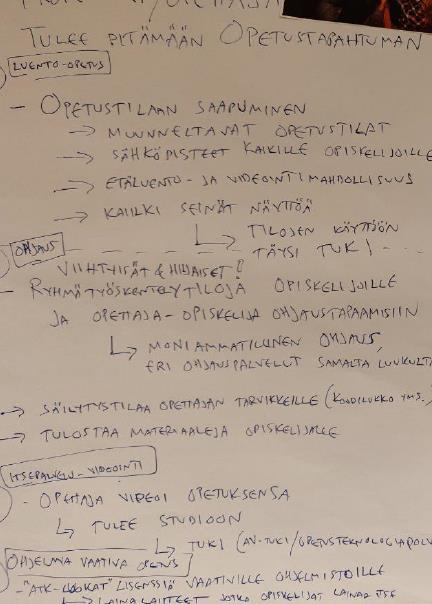 TULEE PITÄMÄÄN OPETUSTAPAHTUMAN
LUENTO-OPETUS
- OPETUSTILAAN SAAPUMINEN
→ MUUNNELTAVAT OPETUSTILAT
→ SÄHKÖPISTEET KAIKILLE OPISKELIJOILLE
→ ETÄLUENTO- JA VIDEOINTIMAHDOLLISUUS
→ KAIKKI SEINÄT NÄYTTÖÄ
↳ TILOJEN KÄYTTÖÖN
TÄYSI TUKI - - -
OHJAUS
VIIHTYISÄT & HILJAISET
- RYHMÄTYÖSKENTELYTILOJA OPISKELIJOILLE
JA OPETTAJA-OPISKELIJA OHJAUSTAPAAMISIIN
↳ MONIAMMATILLINEN OHJAUS,
ERI OHJAUSPALVELUT SAMALTA LUUKULTA
→ SÄILYTYSTILAA OPETTAJAN TARVIKKEILLE (KOODILUKKO YMS.
→ TULOSTAA MATERIAALEJA OPISKELIJALLE
ITSEPALVELU-VIDEOINTI
- OPETTAJA VIDEOI OPETUKSENSA
↳ TULEE STUDIOON
↳ TUKI (AV-TUKI/OPETUSTEKNOLOGIAPALV
OHJELMIA VAATIVA OPETUS
- "ATK-LUOKAT" LISENSSIÄ VAATIVILLE OHJELMISTOILLE
↳ LAINALAITTEET JOTKA OPISKELIJAT LAINAA ITSE